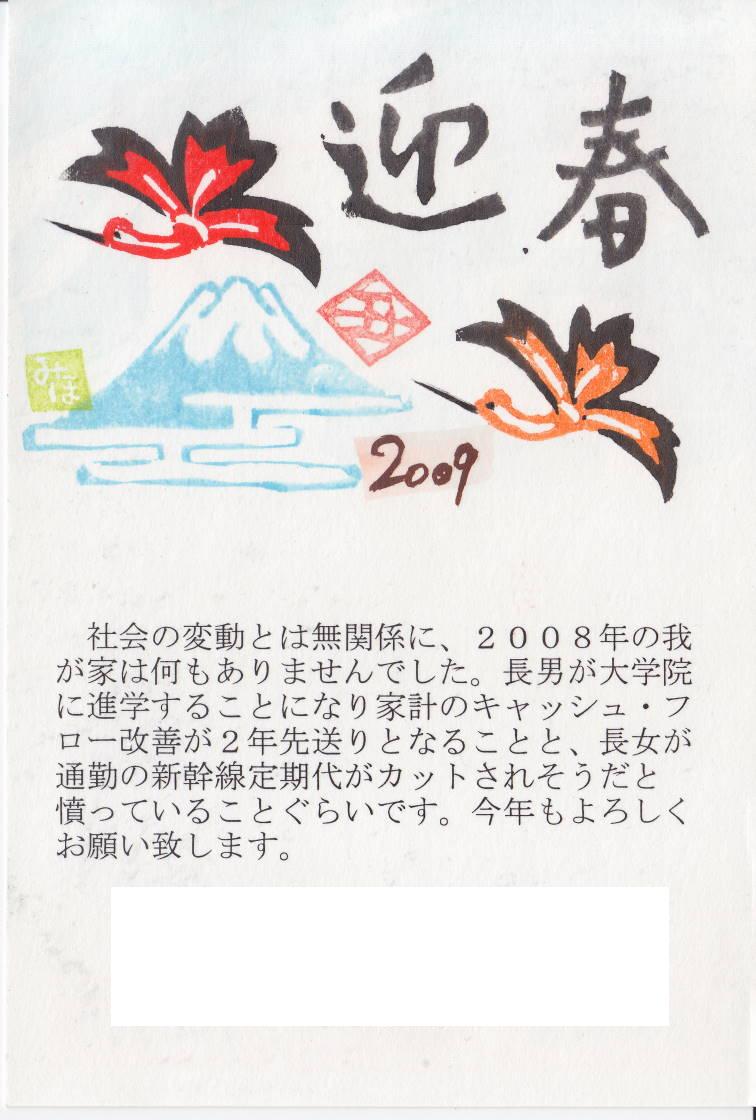 迎春
みほ
2009
社会の変動とは無関係に、２００８年の我
が家は何もありませんでした。長男が大学院
に進学することになり家計のキャッシュ・フ
ロー改善が２年先送りとなることと、長女が
通勤の新幹線定期代がカットされそうだと
憤っていることぐらいです。今年もよろしく
お願い致します。